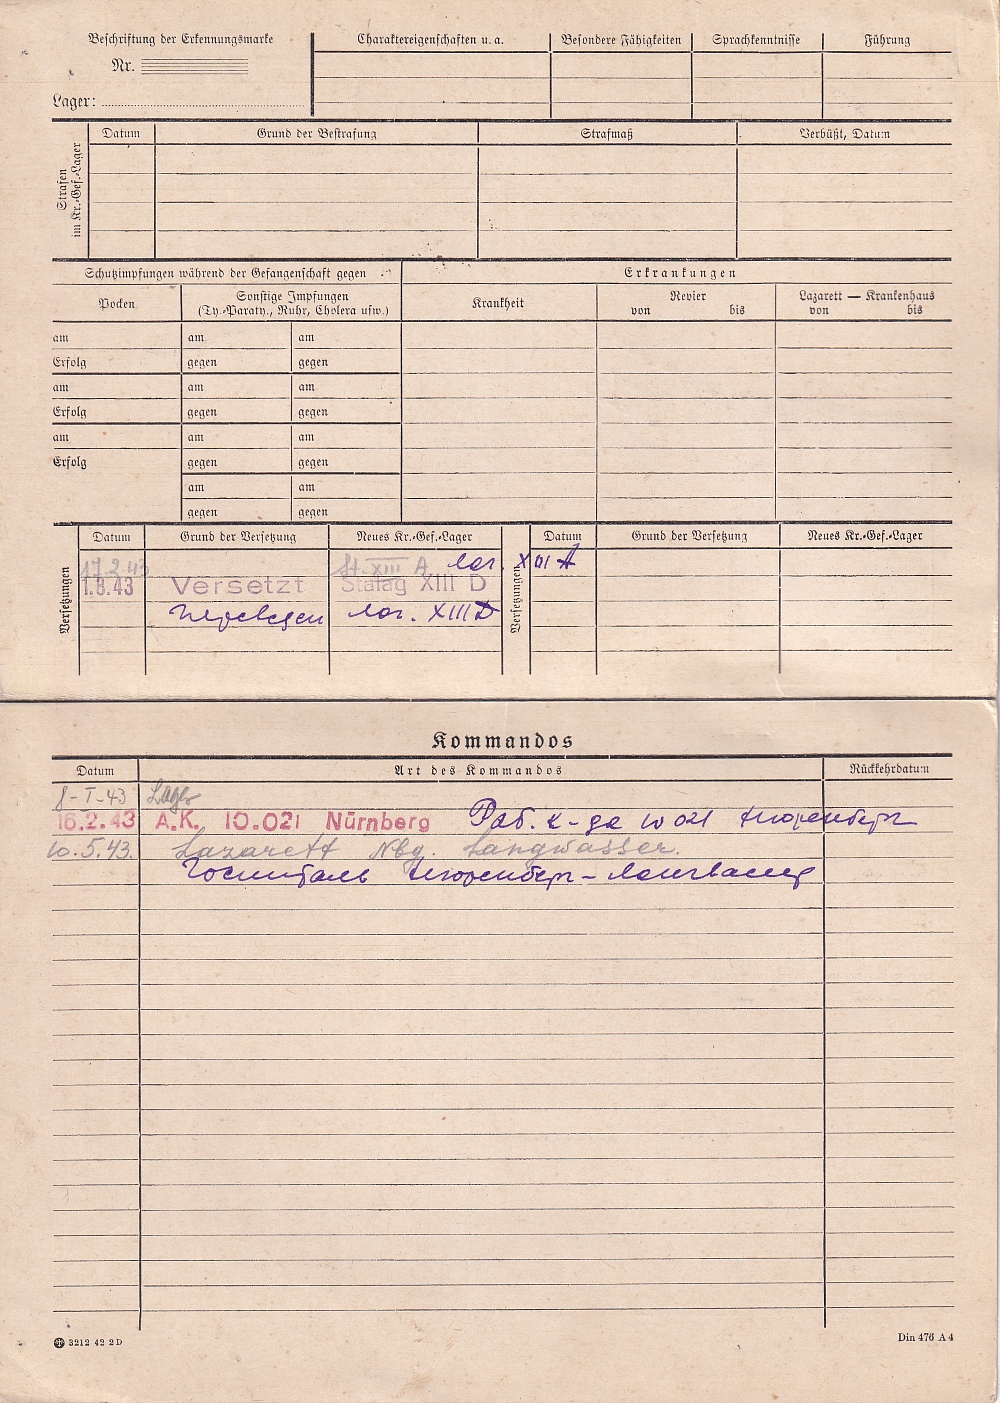 Beschriftung der Erkennungsmarke
Nr.
Lager:
Charaktereigenschaften u. a. Besondere Fähigkeiten Sprachkenntnisse Führung
Strafen im Kr.-Gef.-Lager
Datum Grund der Bestrafung Strafmaß Verbüßt, Datum
Schutzimpfungen während der Gefangenschaft gegen Erkrankungen
Pocken Sonstige Impfungen (Ty.-Paraty., Ruhr, Cholera usw.) Krankheit Revier von bis Lazarett — Krankenhaus von bis
am am am
Erfolg gegen gegen
am am am
Erfolg gegen gegen
am am am
Erfolg gegen gegen
am am
gegen gegen
Versetzungen Datum Grund der Versetzung Neues Kr.-Gef.-Lager Versetzungen Datum Grund der Versetzung Neues Kr.-Gef.-Lager
17.2.43 St. XIII A лаг. XIII A
1.8.43 Versetzt Stalag XIII D
Переведен лаг. XIII D
Kommandos
Datum Art des Kommandos Rückkehrdatum
8-I-43 Lager
16.2.43 A.K. 10.021 Nürnberg Раб. к-да 10021 Нюренберг
10.5.43. Lazarett Nbg. Langwasser.
Госпиталь Нюренберг-Лангвассер
3212 42 2 D Din 476 A 4